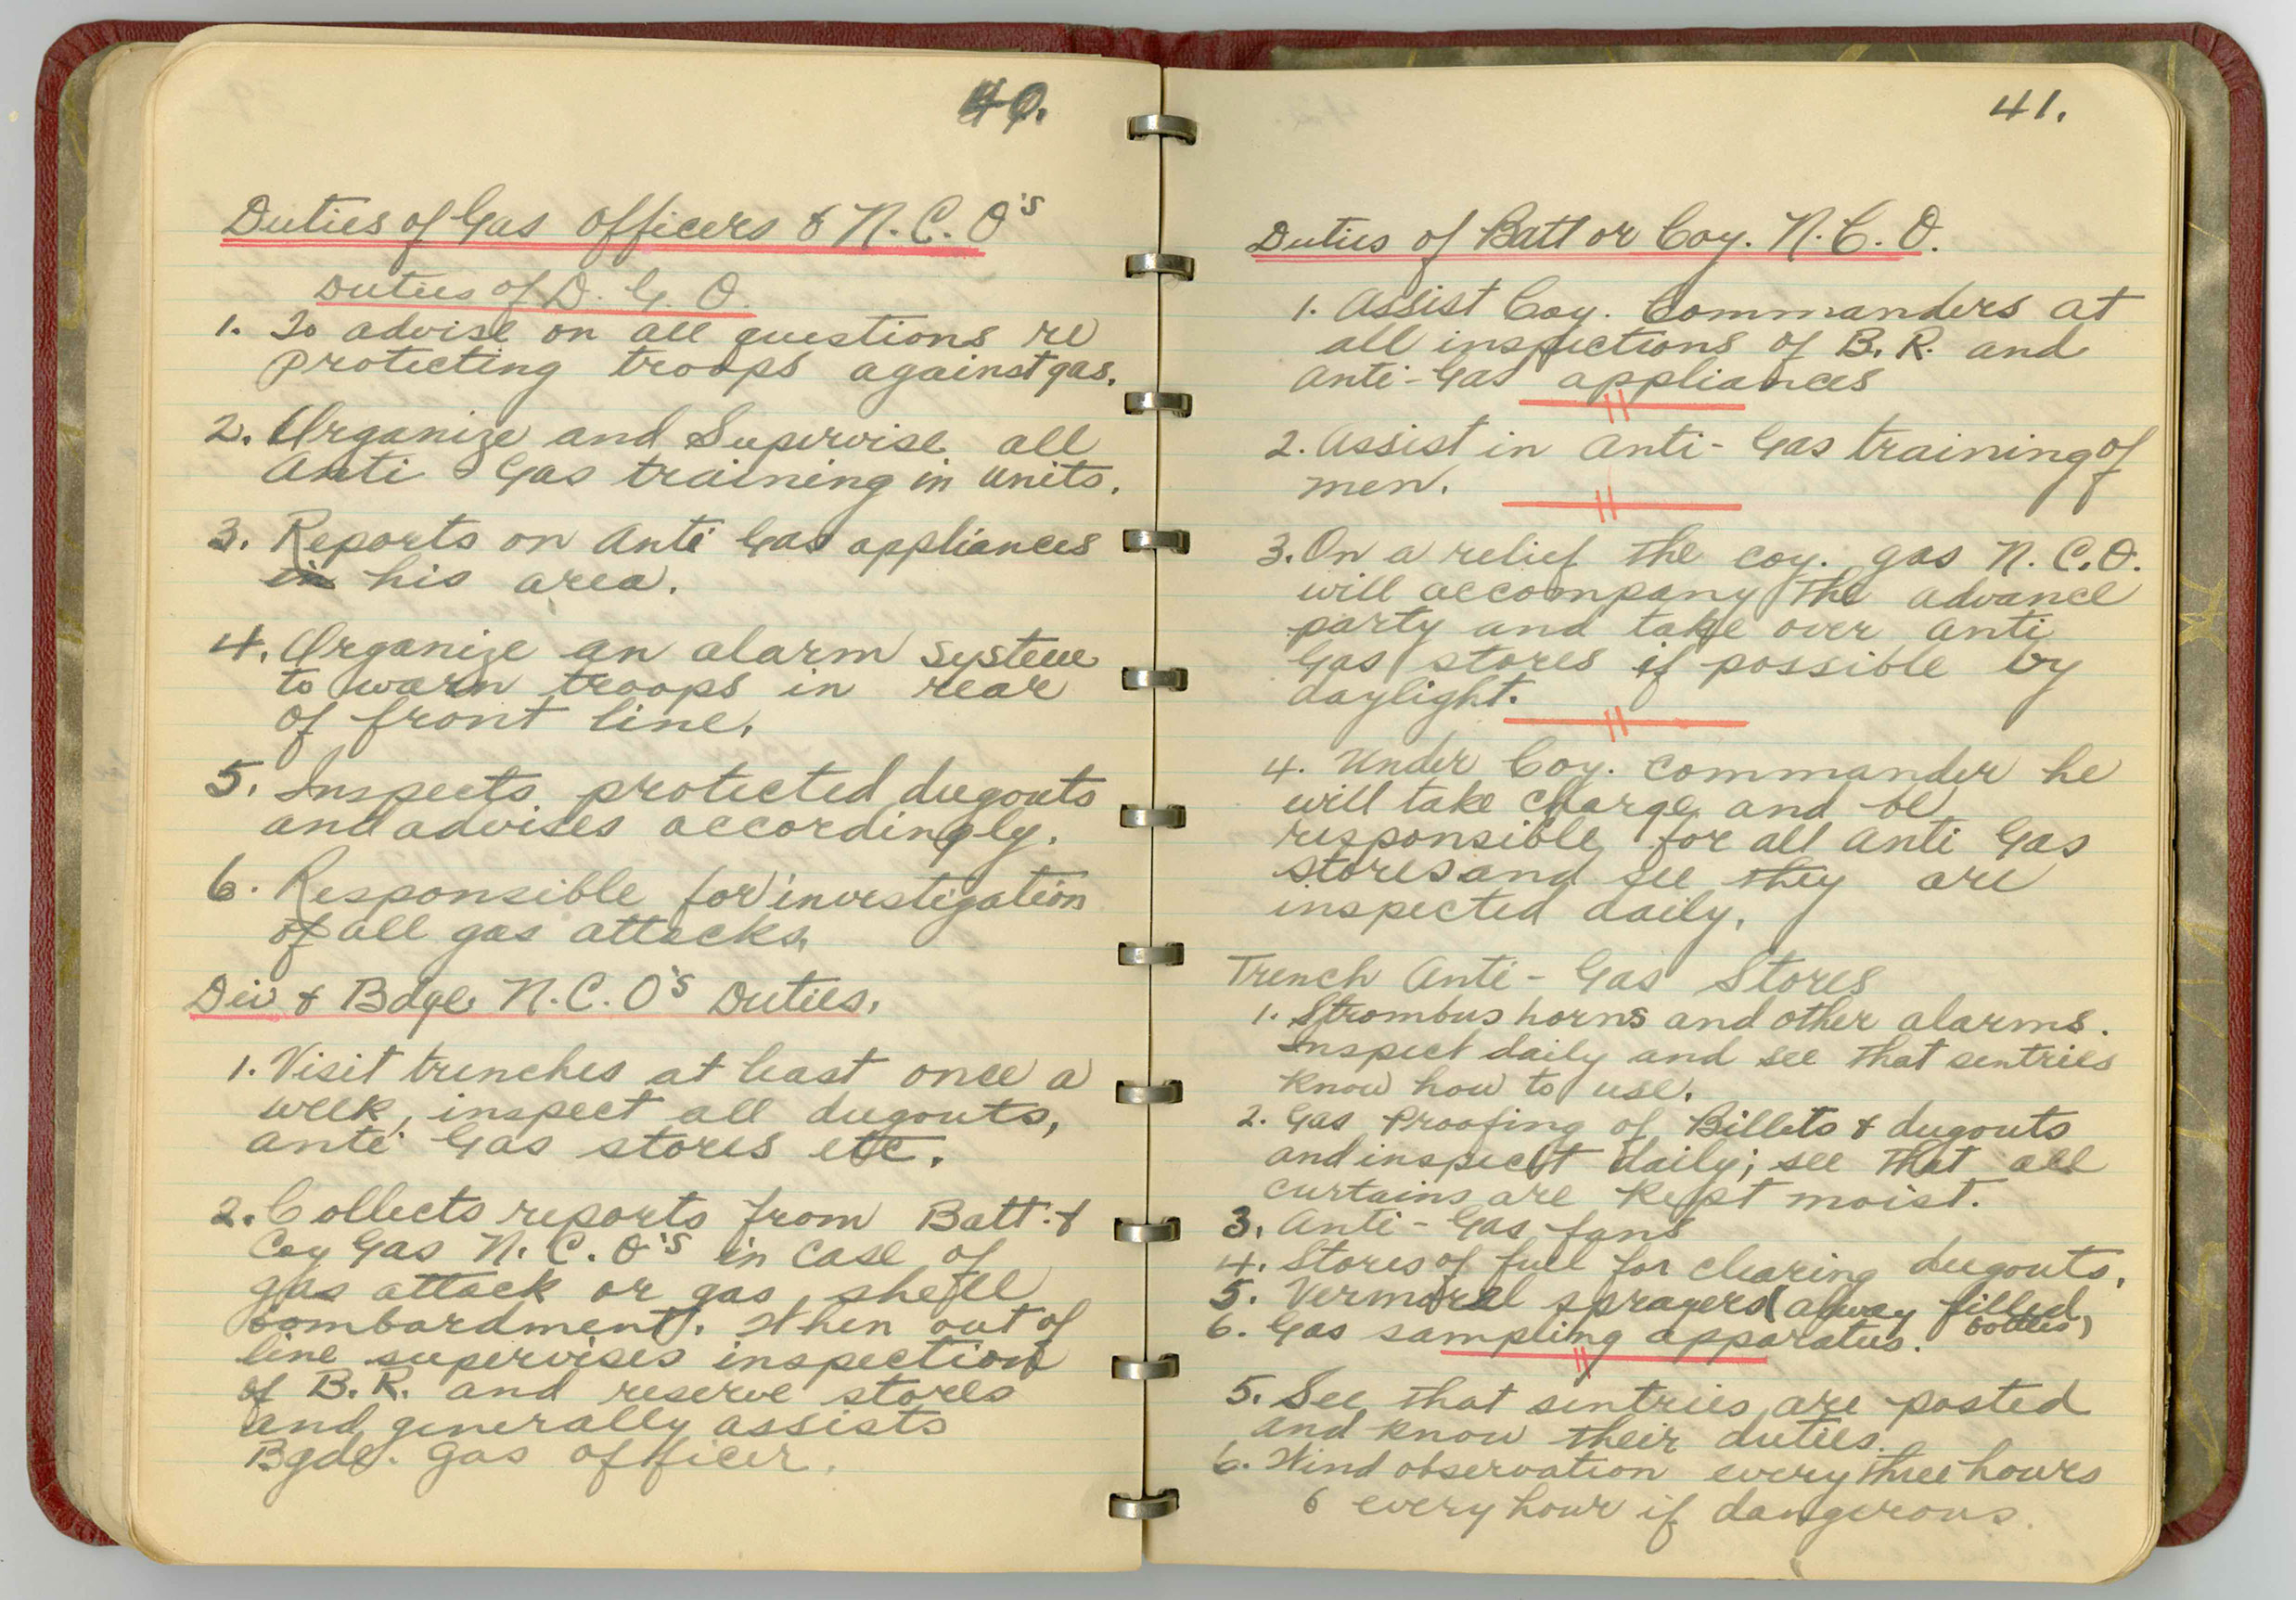 40.
Duties of Gas Officers & N.C.O's
Duties of D.G.O.
1. To advise on all questions re
protecting troops against gas.
2. Organize and Supervise all
Anti Gas training in units.
3. Reports on Anti Gas appliances
in his area.
4. Organize an alarm system
to warn troops in rear
of front line.
5. Inspects protected dugouts
and advises accordingly.
6. Responsible for investigation
of all gas attacks.
Div & Bdge N.C.O's Duties.
1. Visit trenches at least once a
week, inspect all dugouts,
anti Gas stores etc.
2. Collects reports from Batt. &
Coy Gas N.C.O's in case of
gas attack or gas shell
bombardment. When out of
line supervises inspection
of B.R. and reserve stores
and generally assists
Bgde. gas officer.
41.
Duties of Batt or Coy. N.C.O.
1. Assist Coy. Commanders at
all inspections of B.R. and
Anti-Gas appliances
2. Assist in Anti-Gas training of
men.
3. On a relief the coy. gas N.C.O.
will accompany the advance
party and take over Anti
Gas stores if possible by
daylight.
4. Under Coy. commander he
will take charge and be
responsible for all Anti Gas
stores and see they are
inspected daily.
Trench Anti-Gas Stores
1. Strombus horns and other alarms.
Inspect daily and see that sentries
know how to use.
2. Gas Proofing of Billets & dugouts
and inspect daily; see that all
curtains are kept moist.
3. Anti-Gas fans
4. Stores of fuel for clearing dugouts.
5. Vermoral sprayers (alway filled
bottles)
6. Gas sampling apparatus.
5. See that sentries are posted
and know their duties.
6. Wind observation every three hours
6 every hour if dangerous.